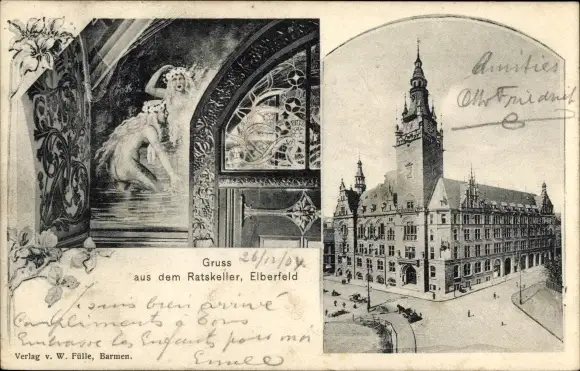 Amitiés
Otto Friedrich
Gruss 26/12/04
aus dem Ratskeller, Elberfeld
Je suis bien arrivé
Compliments à tous
Embrasse les Enfants pour moi
Emile
Verlag v. W. Fülle, Barmen.